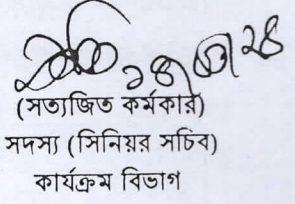 (সত্যজিত কর্মকার)
সদস্য (সিনিয়র সচিব)
কার্যক্রম বিভাগ